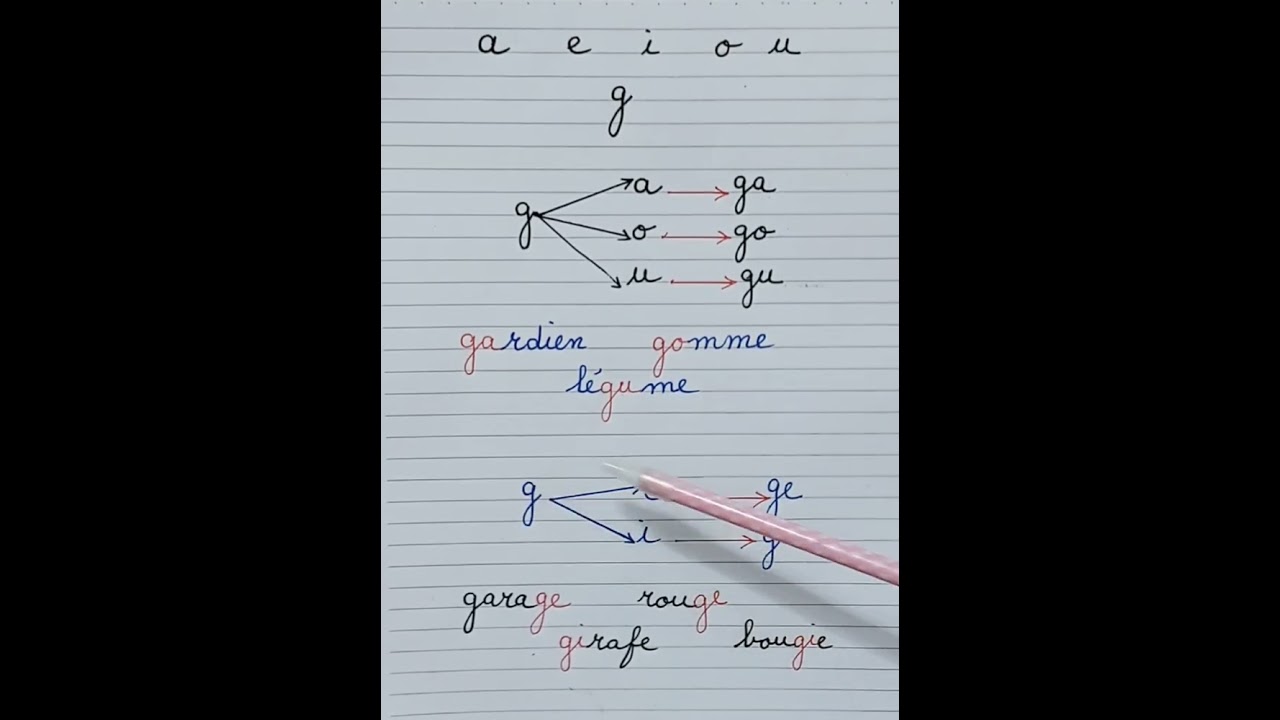 a e i o u
g
a → ga
g o → go
u → gu
gardien gomme
légume
g → ge
i → g
garage rouge
girafe bougie